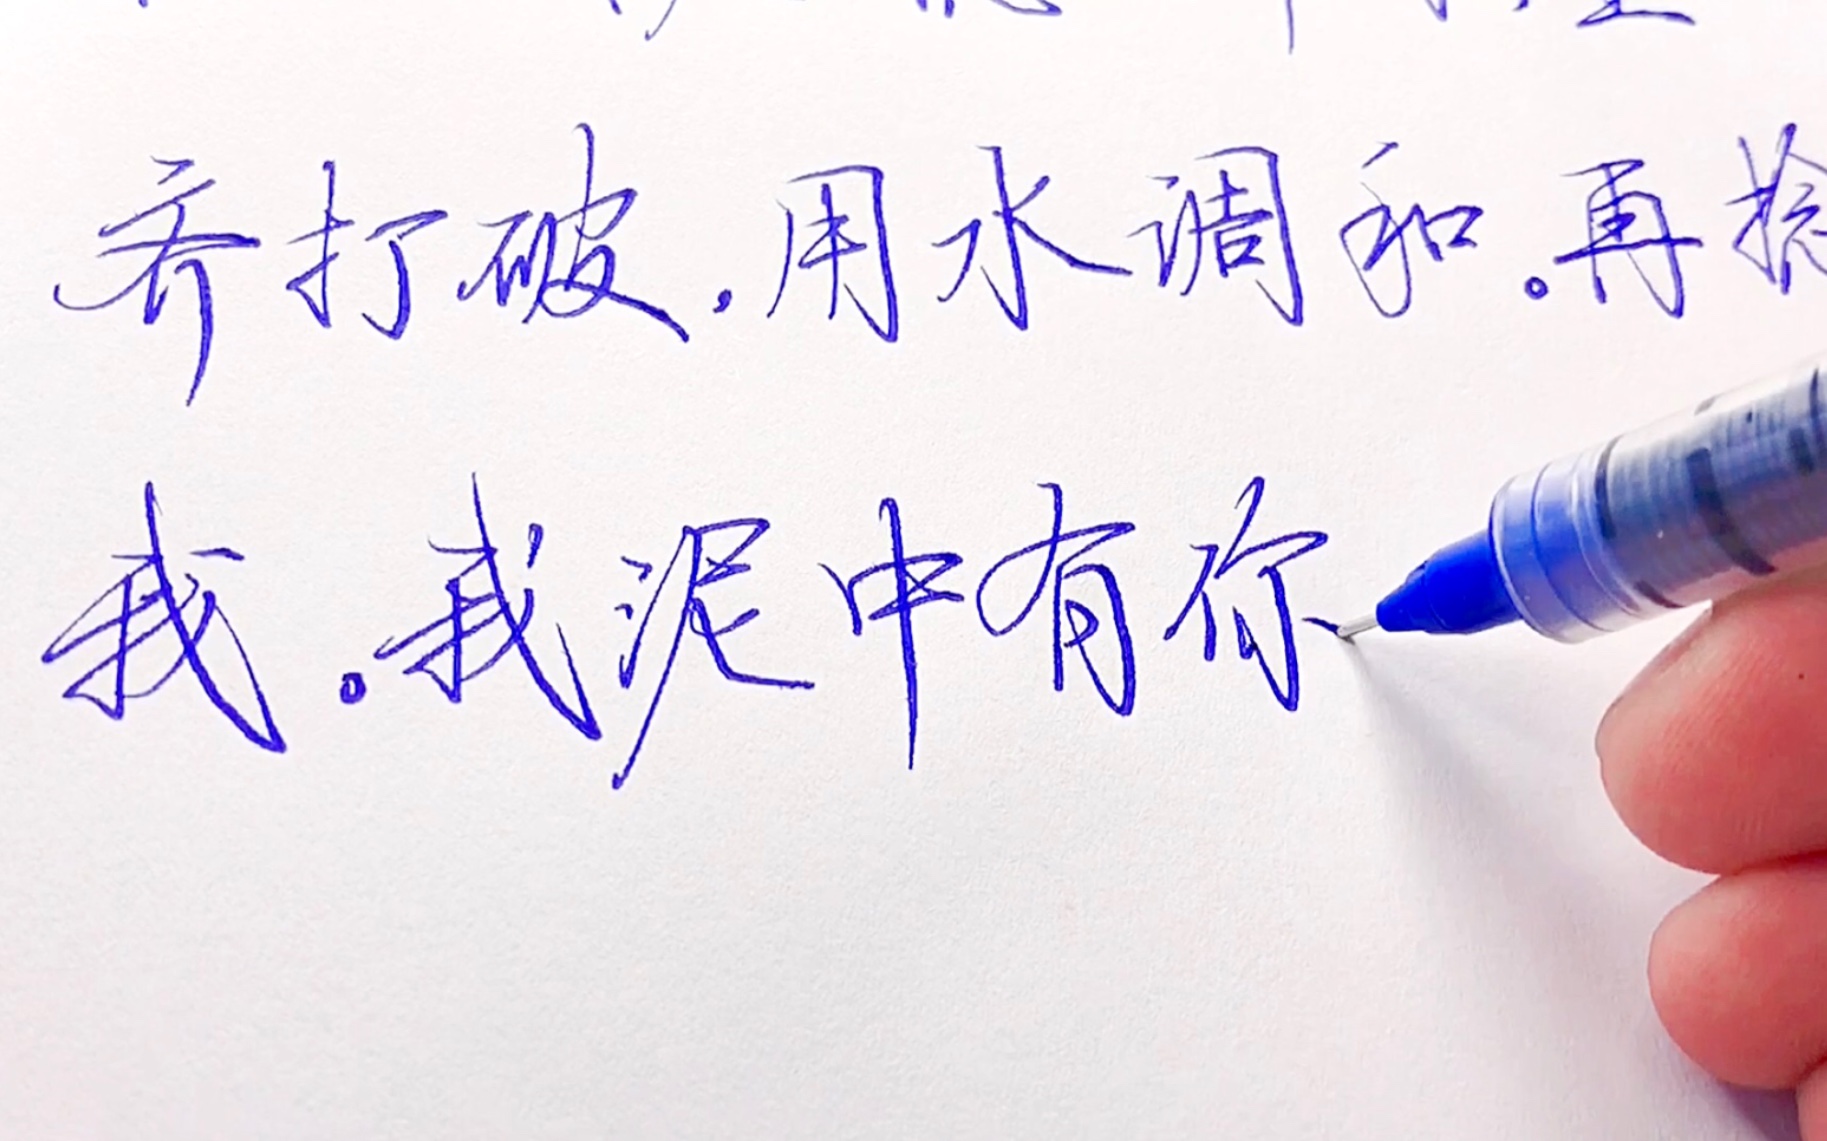 齐打破，用水调和。再捻
我。我泥中有你